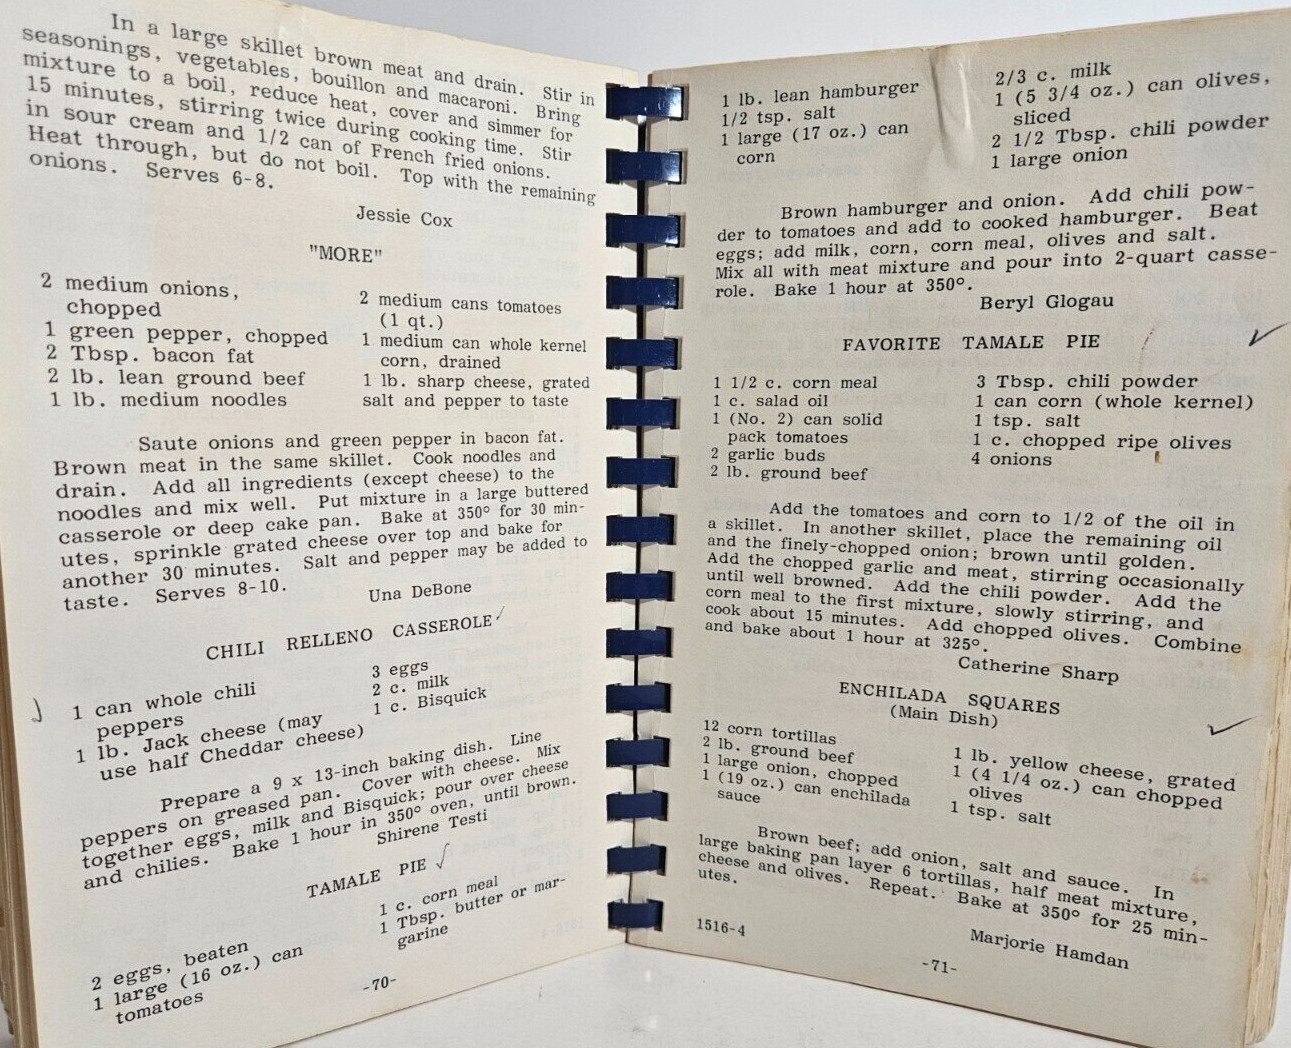 In a large skillet brown meat and drain. Stir in
seasonings, vegetables, bouillon and macaroni. Bring
mixture to a boil, reduce heat, cover and simmer for
15 minutes, stirring twice during cooking time. Stir
in sour cream and 1/2 can of French fried onions.
Heat through, but do not boil. Top with the remaining
onions. Serves 6-8.
Jessie Cox
"MORE"
2 medium onions,
chopped
1 green pepper, chopped
2 Tbsp. bacon fat
2 lb. lean ground beef
1 lb. medium noodles
2 medium cans tomatoes
(1 qt.)
1 medium can whole kernel
corn, drained
1 lb. sharp cheese, grated
salt and pepper to taste
Saute onions and green pepper in bacon fat.
Brown meat in the same skillet. Cook noodles and
drain. Add all ingredients (except cheese) to the
noodles and mix well. Put mixture in a large buttered
casserole or deep cake pan. Bake at 350° for 30 min-
utes, sprinkle grated cheese over top and bake for
another 30 minutes. Salt and pepper may be added to
taste. Serves 8-10.
Una DeBone
CHILI RELLENO CASSEROLE
1 can whole chili
peppers
1 lb. Jack cheese (may
use half Cheddar cheese)
3 eggs
2 c. milk
1 c. Bisquick
Prepare a 9 x 13-inch baking dish. Line
peppers on greased pan. Cover with cheese. Mix
together eggs, milk and Bisquick; pour over cheese
and chilies. Bake 1 hour in 350° oven, until brown.
Shirene Testi
TAMALE PIE
2 eggs, beaten
1 large (16 oz.) can
tomatoes
1 c. corn meal
1 Tbsp. butter or mar-
garine
-70-
1 lb. lean hamburger
1/2 tsp. salt
1 large (17 oz.) can
corn
2/3 c. milk
1 (5 3/4 oz.) can olives,
sliced
2 1/2 Tbsp. chili powder
1 large onion
Brown hamburger and onion. Add chili pow-
der to tomatoes and add to cooked hamburger. Beat
eggs; add milk, corn, corn meal, olives and salt.
Mix all with meat mixture and pour into 2-quart casse-
role. Bake 1 hour at 350°.
Beryl Glogau
FAVORITE TAMALE PIE
1 1/2 c. corn meal
1 c. salad oil
1 (No. 2) can solid
pack tomatoes
2 garlic buds
2 lb. ground beef
3 Tbsp. chili powder
1 can corn (whole kernel)
1 tsp. salt
1 c. chopped ripe olives
4 onions
Add the tomatoes and corn to 1/2 of the oil in
a skillet. In another skillet, place the remaining oil
and the finely-chopped onion; brown until golden.
Add the chopped garlic and meat, stirring occasionally
until well browned. Add the chili powder. Add the
corn meal to the first mixture, slowly stirring, and
cook about 15 minutes. Add chopped olives. Combine
and bake about 1 hour at 325°.
Catherine Sharp
ENCHILADA SQUARES
(Main Dish)
12 corn tortillas
2 lb. ground beef
1 large onion, chopped
1 (19 oz.) can enchilada
sauce
1 lb. yellow cheese, grated
1 (4 1/4 oz.) can chopped
olives
1 tsp. salt
Brown beef; add onion, salt and sauce. In
large baking pan layer 6 tortillas, half meat mixture,
cheese and olives. Repeat. Bake at 350° for 25 min-
utes.
1516-4
Marjorie Hamdan
-71-